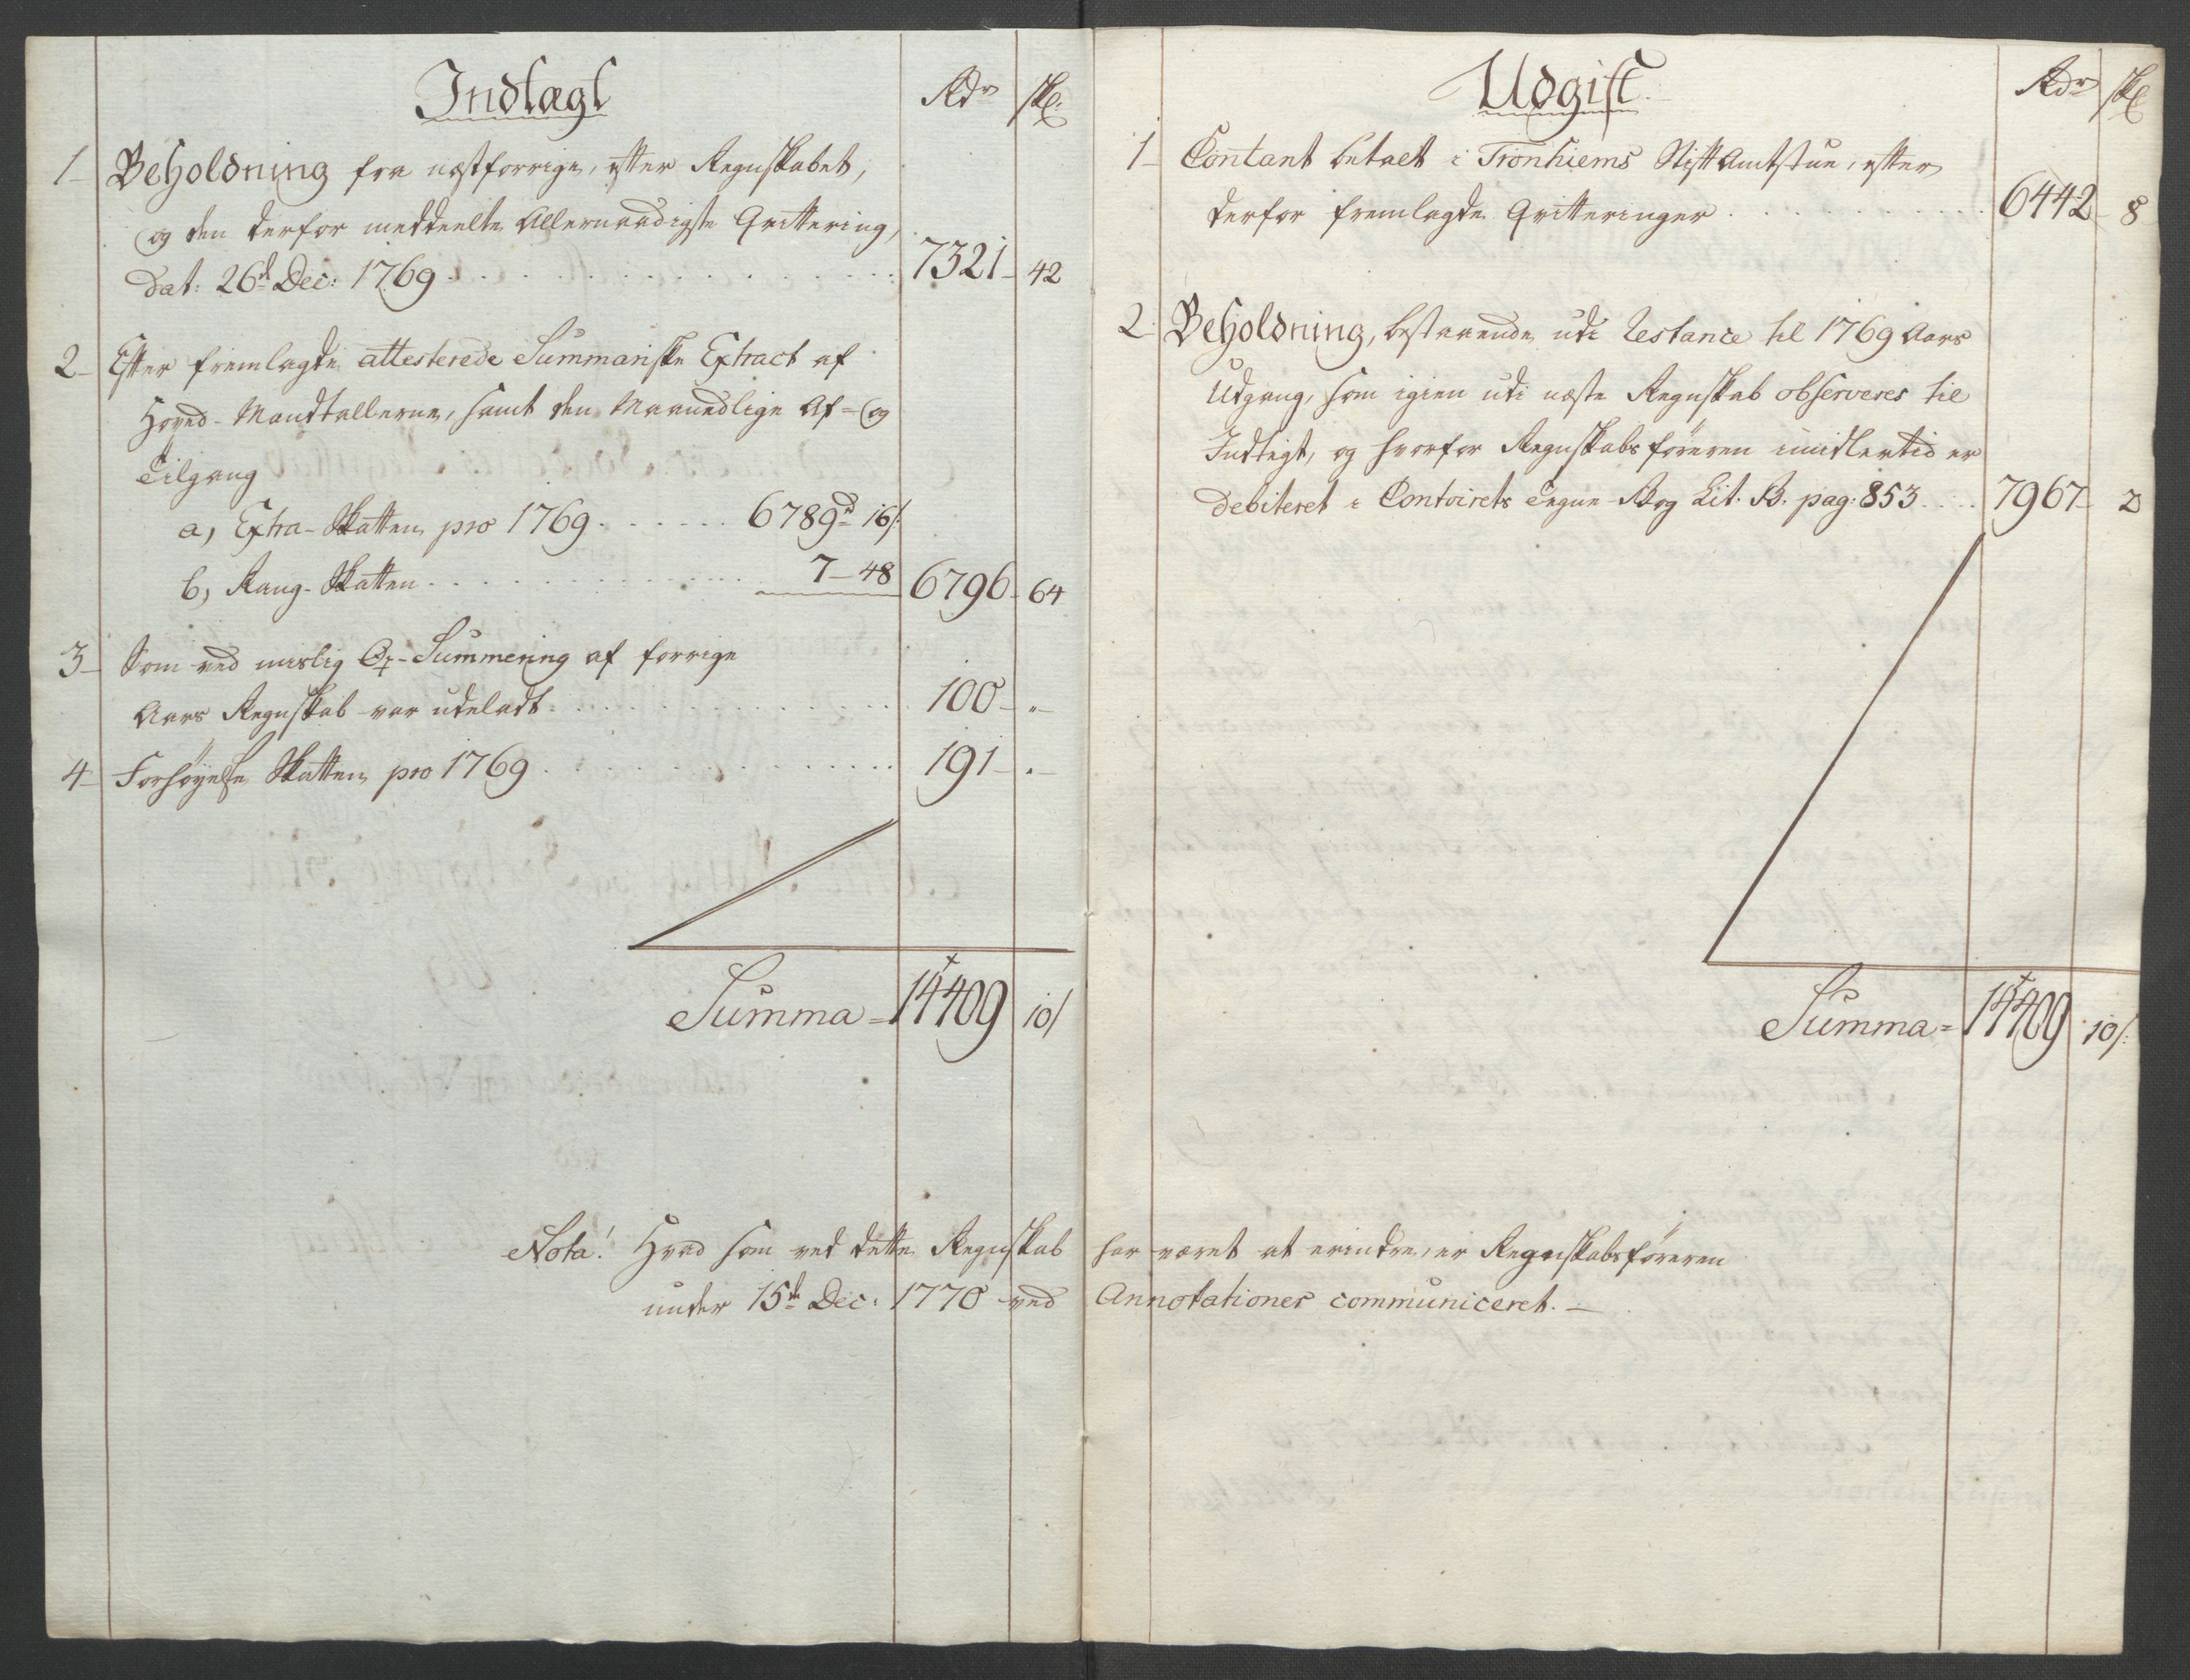 Indtægt
Rdr skl:
1 Beholdning fra næstforrige, efter Regnskabet,
og den derfor meddeelte Allernaadigste Qvittering,
dat: 26d Dec: 1769 7321 42
2 Efter fremlagde attesterede Summariske Extract af
Hoved-Mandtallerne, samt den Maanedlige Af= og
Tilgang
a, Extra-Skatten pro 1769 6789rd 16/:
b, Rang-Skatten 7 - 48 6796 64
3 Som ved urigtig -Summering af forrige
Aars Regnskab var udeladt 100 - "
4 Forhøyelse Skatten pro 1769 191 - "
Summa = 14409 10/
Udgift
Rdr skl
1 Contant betalt i Tronhiems Stiftamtstue, efter
derfor fremlagde Qvitteringer 6442 8
2 Beholdning, bestaaende udi Restance til 1769 Aars
Udgang, som igien udi næste Regnskab observeres til
Indtægt, og hvorfor Regnskabsføreren imidlertid er
debiteret i Contoirets Tegne-Bog Lit. B. pag: 853 7967 2
Summa = 14409 10/:
Nota! Hvad som ved dette Regnskab har været at erindre, er Regnskabsføreren
under 15de Dec: 1770 ved Annotationer communiceret.